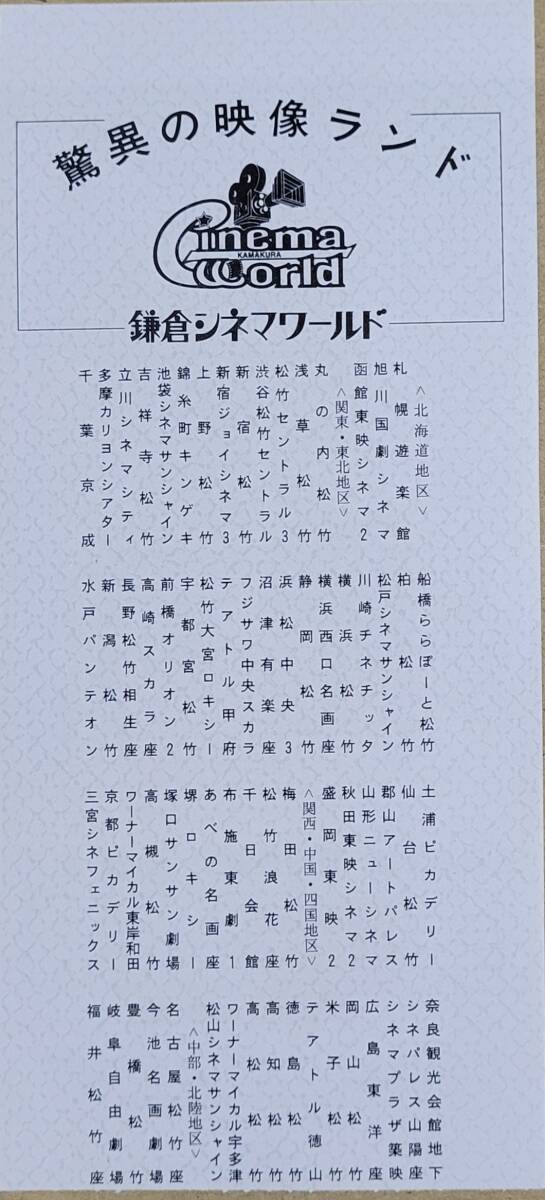 驚異の映像ランド
Cinema
KAMAKURA
World
鎌倉シネマワールド
<北海道地区>
札幌遊楽館
旭川国劇シネマ
函館東映シネマ2
<関東・東北地区>
丸の内松竹
浅草松竹
松竹セントラル3
渋谷松竹セントラル
新宿松竹
新宿ジョイシネマ3
上野松竹
錦糸町キンゲキ
池袋シネマサンシャイン
吉祥寺松竹
立川シネマシティ
多摩カリヨンシアター
千葉京成
船橋ららぽーと松竹
柏松竹
松戸シネマサンシャイン
川崎チネチッタ
横浜松竹
横浜西口名画座
静岡松竹
浜松中央3
沼津有楽座
フジサワ中央スカラ
テアトル甲府
松竹大宮ロキシー
宇都宮松竹
前橋オリオン2
高崎スカラ座
長野松竹相生座
新潟松竹
水戸パンテオン
土浦ピカデリー
仙台松竹
郡山アートパレス
山形ニューシネマ
秋田東映シネマ2
盛岡東映2
<関西・中国・四国地区>
梅田松竹
松竹浪花座
千日会館
布施東劇1
あべの名画座
堺ロキシー
塚口サンサン劇場
高槻松竹
ワーナーマイカル東岸和田
京都ピカデリー
三宮シネフェニックス
奈良観光会館地下
シネパレス山陽座
シネマプラザ築映
広島東洋座
岡山松竹
米子松竹
テアトル徳山
徳島松竹
高知松竹
高松松竹
ワーナーマイカル宇多津
松山シネマサンシャイン
<中部・北陸地区>
名古屋松竹座
今池名画劇場
豊橋松竹
岐阜自由劇場
福井松竹座